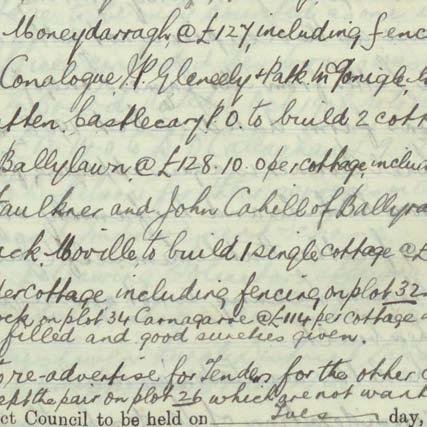 Moneydarragh @ £127, including fenc
Conalogue J.P. Gleneely & Patk. McGonigle,
atten. Castlecary P.O. to build 2 cott
Ballylawn @ £128.10.0 per cottage, includ
Faulkner and John Cahill of Ballyra
ack, Moville to build 1 single cottage @ £
per cottage including fencing on plot 32
ock, on plot 34 Carnagarve @ £114 per cottage
filled and good sureties given.
to re-advertise for Tenders for the other
ept the pair on plot 26 which are not want
ct Council to be held on Tues day,